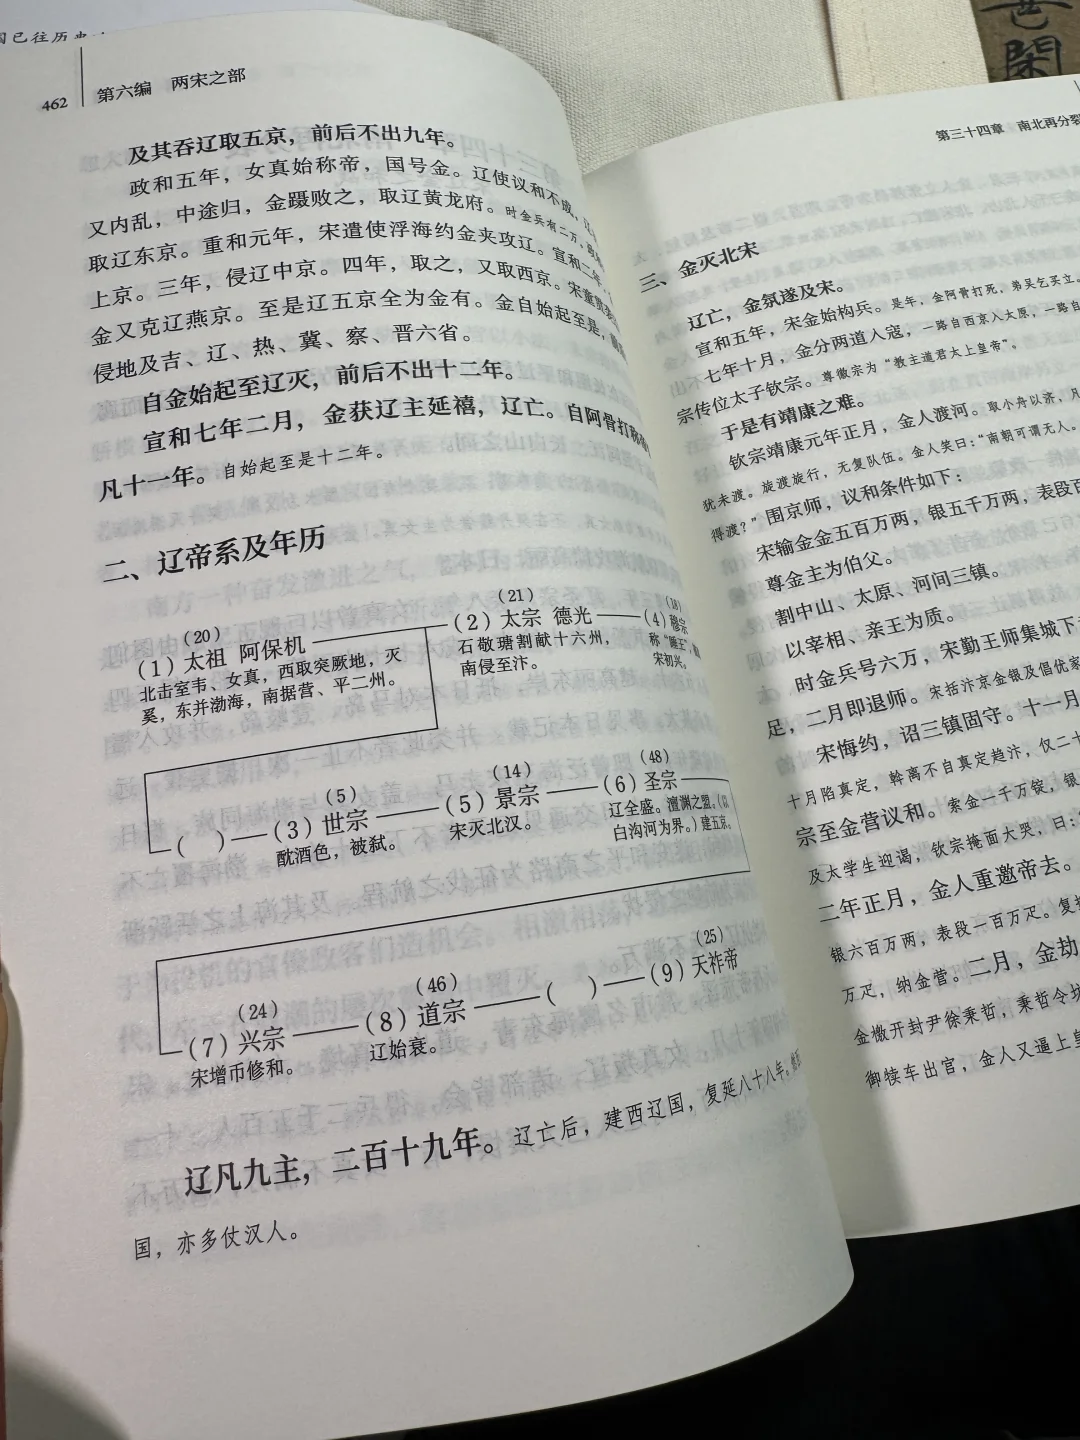 国已往历史
462 第六编 两宋之部
及其吞辽取五京，前后不出九年。
政和五年，女真始称帝，国号金。辽使议和不成，
又内乱，中途归，金蹑败之，取辽黄龙府。时金兵有二万。
取辽东京。重和元年，宋遣使浮海约金夹攻辽。宣和二年，
上京。三年，侵辽中京。四年，取之，又取西京。宋童贯
金又克辽燕京。至是辽五京全为金有。金自始起至是，
侵地及吉、辽、热、冀、察、晋六省。
自金始起至辽灭，前后不出十二年。
宣和七年二月，金获辽主延禧，辽亡。自阿骨打称
凡十一年。自始起至是十二年。
二、辽帝系及年历
(20)
(1) 太祖 阿保机
北击室韦、女真，西取突厥地，灭
奚，东并渤海，南据营、平二州。
(21)
(2) 太宗 德光
石敬瑭割献十六州，
南侵至汴。
(18)
(4) 穆宗
称“睡王”，
宋初兴。
( )
(5)
(3) 世宗
酖酒色，被弑。
(14)
(5) 景宗
宋灭北汉。
(48)
(6) 圣宗
辽全盛。澶渊之盟。(以
白沟河为界。) 建五京。
(24)
(7) 兴宗
宋增币修和。
(46)
(8) 道宗
辽始衰。
( )
(25)
(9) 天祚帝
辽凡九主，二百十九年。辽亡后，建西辽国，复延八十八年。
国，亦多仗汉人。
第三十四章 南北再分裂
三、金灭北宋
辽亡，金氛遂及宋。
宣和五年，宋金始构兵。是年，金阿骨打死，弟吴乞买立。
七年十月，金分两道入寇，一路自西京入太原，一路自
宗传位太子钦宗。尊徽宗为“教主道君太上皇帝”。
于是有靖康之难。
钦宗靖康元年正月，金人渡河。取小舟以济，凡
犹未渡。旋渡旋行，无复队伍。金人笑曰：“南朝可谓无人。
得渡？”围京师，议和条件如下：
宋输金金五百万两，银五千万两，表段百
尊金主为伯父。
割中山、太原、河间三镇。
以宰相、亲王为质。
时金兵号六万，宋勤王师集城下
足，二月即退师。宋括汴京金银及倡优家
宋悔约，诏三镇固守。十一月
十月陷真定，斡离不自真定趋汴，仅二十
宗至金营议和。索金一千万锭，银
及太学生迎谒，钦宗掩面大哭，曰：
二年正月，金人重邀帝去。
银六百万两，表段一百万疋。复
万疋，纳金营。二月，金劫
金檄开封尹徐秉哲，秉哲令坊
御犊车出宫，金人又逼上皇